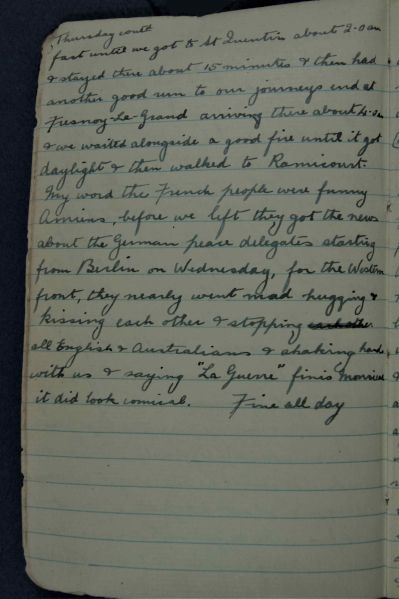 Thursday cont
fast until we got to St Quentin about 2-0 am
& stayed there about 15 minutes & then had
another good run to our journeys end at
Fresnoy-La-Grand arriving there about 4-0 am
& we waited alongside a good fire until it got
daylight & then walked to Ramicourt.
My word the French people were funny
Amiens before we left they got the news
about the German peace delegates starting
from Berlin on Wednesday, for the Western
front, they nearly went mad hugging &
kissing each other & stopping each other
all English & Australians & shaking hands
with us & saying "La Guerre" finis
it did look comical. Fine all day